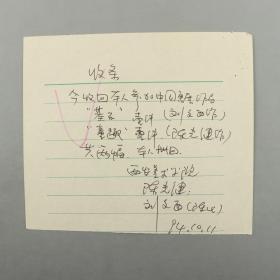 收条
今收回本人参加中国画展作品
"基石"壹件（刘文西作）
"童趣"壹件（陈光健作）
共两幅
西安美术学院
陈光健
刘文西
94.10.11